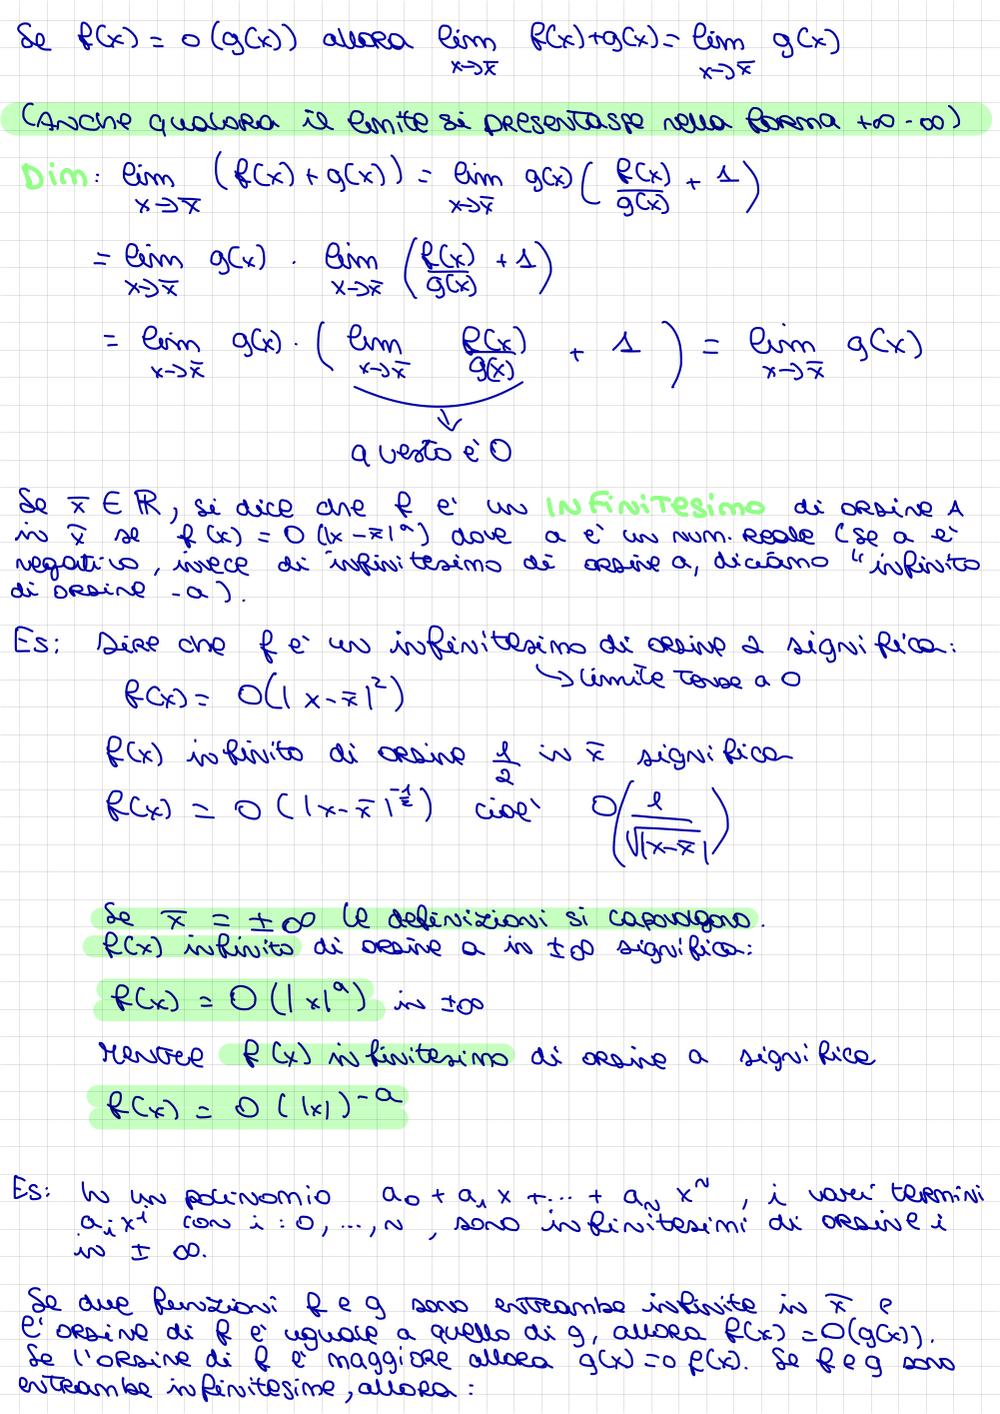 Se f(x) = o(g(x)) allora lim x→x̄ f(x)+g(x) = lim x→x̄ g(x)
(Anche qualora il limite si presentasse nella forma +∞ -∞)
Dim: lim x→x̄ (f(x) + g(x)) = lim x→x̄ g(x) ( f(x)/g(x) + 1 )
= lim x→x̄ g(x) · lim x→x̄ ( f(x)/g(x) + 1 )
= lim x→x̄ g(x) · ( lim x→x̄ f(x)/g(x) + 1 ) = lim x→x̄ g(x)
↓
questo è 0
Se x̄ ∈ ℝ, si dice che f è un INFINITESIMO di ordine 1
in x̄ se f(x) = O(|x-x̄|ᵃ) dove a è un num. reale (se a è
negativo, invece di infinitesimo di ordine a, diciamo "infinito
di ordine -a).
Es: Dire che f è un infinitesimo di ordine 2 significa:
↳ limite tende a 0
f(x) = O(|x-x̄|²)
f(x) infinito di ordine 1/2 in x̄ significa
f(x) = O(|x-x̄|^-1/2) cioè O( 1/√|x-x̄| )
Se x̄ = ±∞ le definizioni si capovolgono.
f(x) infinito di ordine a in ±∞ significa:
f(x) = O(|x|ᵃ) in ±∞
mentre f(x) infinitesimo di ordine a significa
f(x) = O(|x|)^-a
Es: In un polinomio a₀ + a₁x + ... + aₙxⁿ, i vari termini
aᵢxⁱ con i: 0, ..., n, sono infinitesimi di ordine i
in ± ∞.
Se due funzioni f e g sono entrambe infinite in x̄ e
l'ordine di f è uguale a quello di g, allora f(x) = O(g(x)).
Se l'ordine di f è maggiore allora g(x) = o f(x). Se f e g sono
entrambe infinitesime, allora: